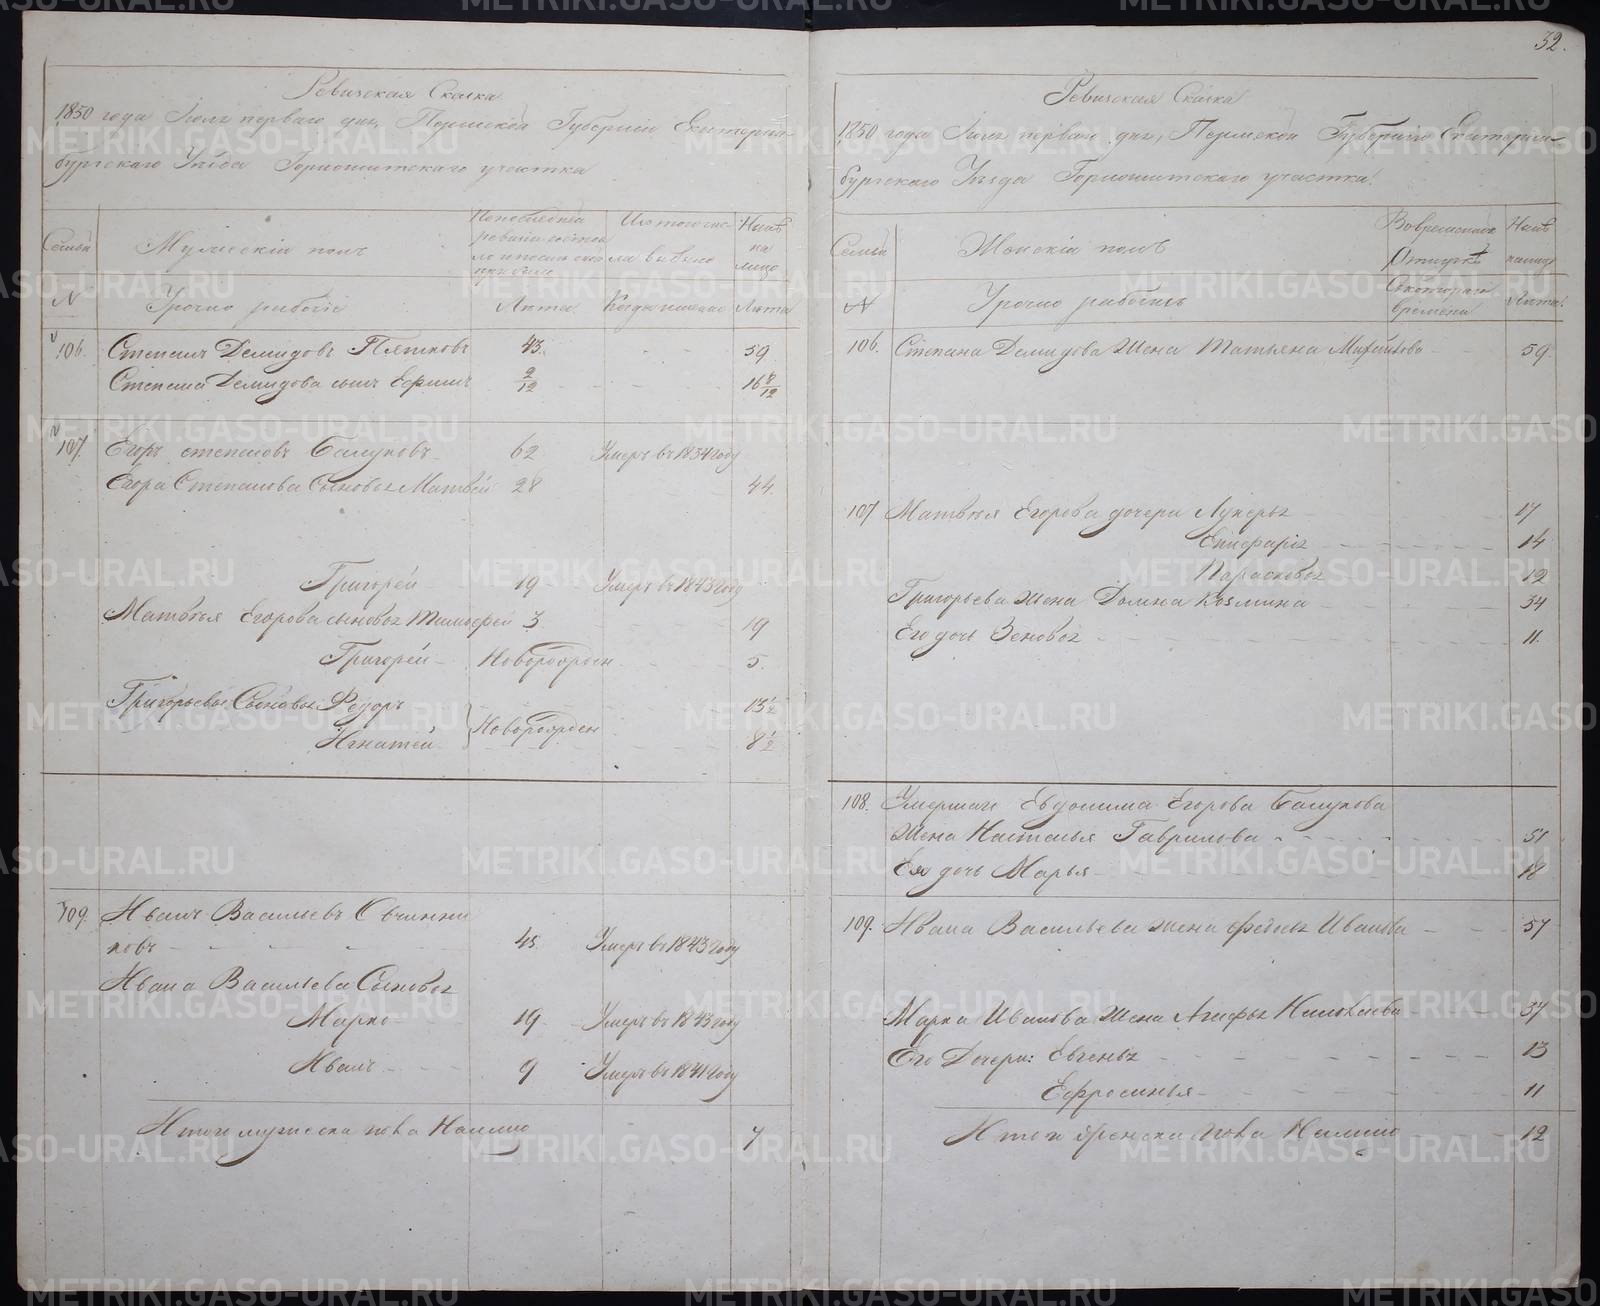 32.
Ревизская Сказка
1850 года Іюля перваго дня, Пермской Губерніи Екатерин-
бургскаго Уѣзда Горнощитскаго участка
Семьи
Мужескій полъ
По последней
ревизіи состоя
ло и после того
прибыло
Изъ того чис-
ла выбыло
Нынѣ
на
лицо
№
Урочно рабочіе
Лѣта
Когда именно
Лѣта
106. Степанъ Демидовъ Пятковъ 43. 59
Степана Демидова сынъ Ефимъ 2/12 16 8/12
107. Егоръ Степановъ Балуковъ 62 Умеръ въ 1834 году
Егора Степанова Сыновья Матвей 28 44.
Григорей 19 Умеръ въ 1843 году
Матвѣя Егорова сыновья Тимофей 3 19
Григорей Новорожден 5.
Григорьевы Сыновья Федоръ 13 1/2
Игнатей Новорожден 8 1/2
109. Иванъ Васильевъ Овчинни
ковъ 45 Умеръ въ 1843 году
Ивана Васильева Сыновья
Марко 19 Умеръ въ 1843 году
Иванъ 9 Умеръ въ 1841 году
Итого мужеска пола Налицо 7
Ревизская Сказка
1850 года Іюля перваго дня, Пермской Губерніи Екатерин-
бургскаго Уѣзда Горнощитскаго участка
Семьи
Женскій полъ
Во временной
Отлучкѣ
Нынѣ
налицо
№
Урочно рабочихъ
Съ котораго
времени
Лѣта
106. Степана Демидова Жена Татьяна 59
107 Матвѣя Егорова дочери Лукерья 17
14
Парасковья 12
Григорьева жена Домна Козмина 34
Его дочь Зеновья 11.
108. Умершаго Евдокима Егорова Балукова
Жена Наталья Гаврилова 51
Ея дочь Марья 18
109. Ивана Васильева жена Федосья Иванова 57
Марка Иванова Жена Агафья Николаева 37
Его Дочери: Евгенья 13
Ефросинья 11
Итого женска пола Налицо 12
METRIKI.GASO-URAL.RU